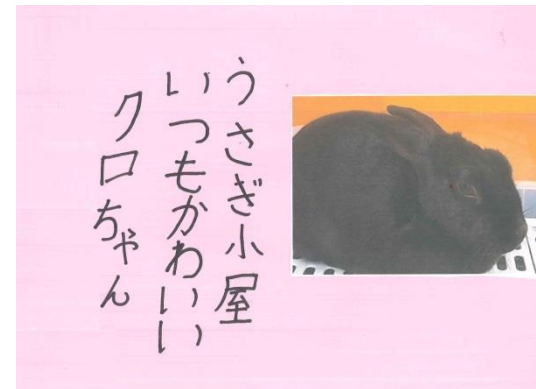 うさぎ小屋
いつもかわいい
クロちゃん